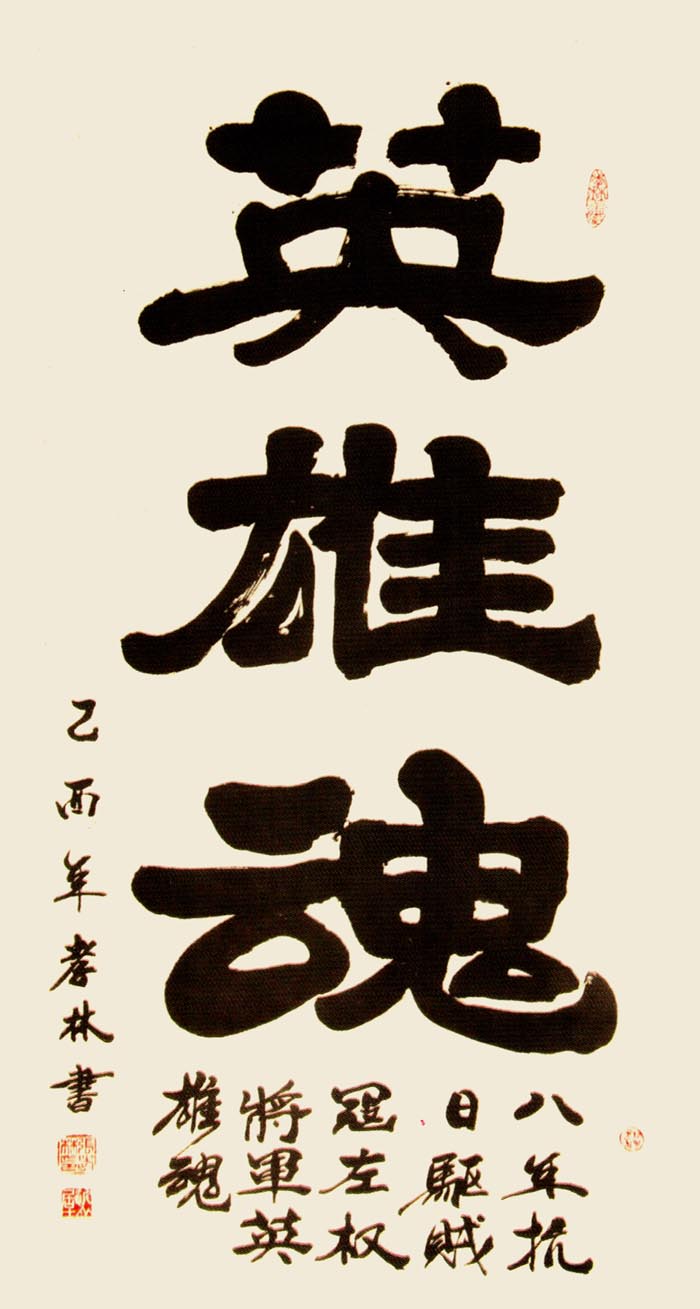 英雄魂
八年抗
日驅賊
冦左权
將軍英
雄魂
乙酉年孝林書